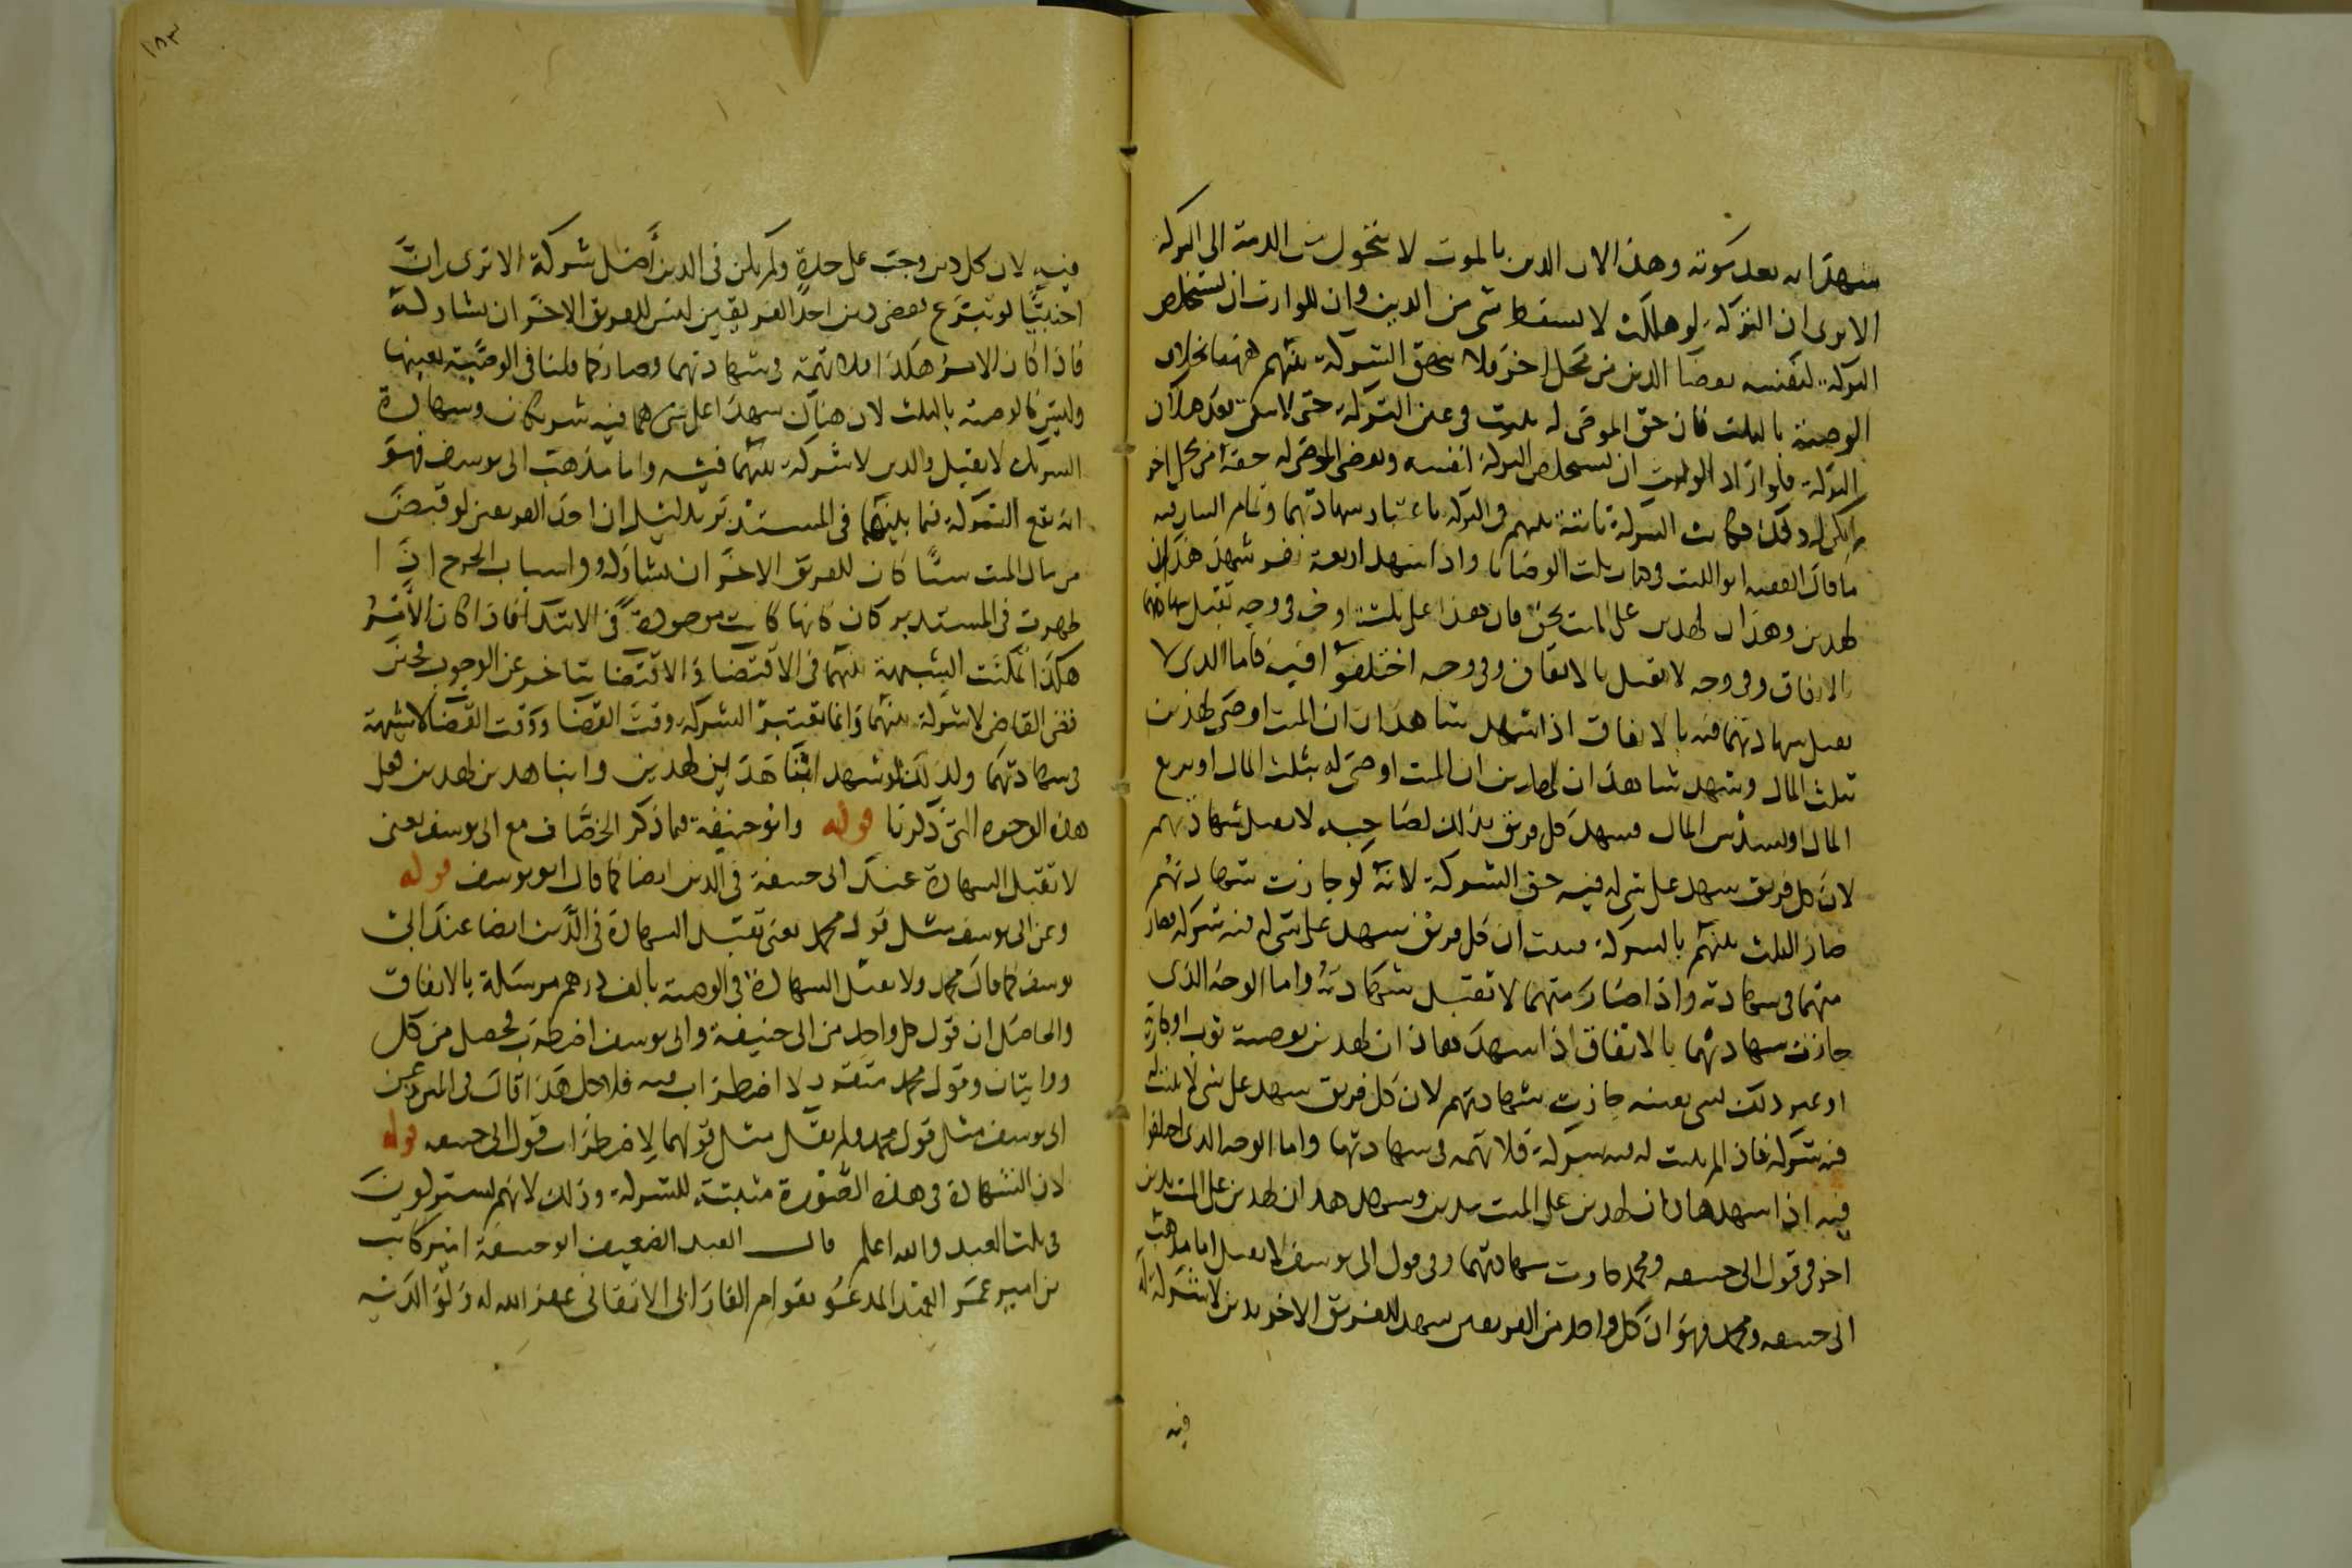 شهدا به بعد موته وهذا لان الدين بالموت لا يتحول من الذمة الى التركة
الا يرى ان التركة لو هلكت لا يسقط شى من الدين وان للوارث ان يستخلص
التركة لنفسه بقضا الدين من محل اخر فلا يتحقق الشركة بينهم بخلاف
الوصية بالثلث فان حق الموصى له يثبت فى عين التركة حتى لا يبقى بعد هلاك
التركة ولو اراد الوارث ان يستخلص التركة لنفسه ويعطى الموصى له حقه من محل اخر
لم يكن له ذلك فكانت الشركة ثابتة بينهم فى التركة باعتبار شهادتهما وتمام البيان فيه
ما قال الفقيه ابو الليث فى كتاب الوصايا واذا شهد اربعة نفر شهد هذان
لهذين وهذان لهذين على الميت بحق فان هذا على ثلثة اوجه فى وجه تقبل شهادتهما
بالاتفاق وفى وجه لا تقبل بالاتفاق وفى وجه اختلفوا فيه فاما الذى لا
تقبل شهادتهما فيه بالاتفاق اذا شهد شاهدان ان الميت اوصى لهذين
بثلث المال وشهد شاهدان اخران ان الميت اوصى له بثلث المال او بربع
المال او بسدس المال فشهد كل فريق بذلك لصاحبه لا تقبل شهادتهم
لان كل فريق شهد على شى له فيه حق الشركة لانه لو جازت شهادتهم
صار الثلث بينهم بالشركة فثبت ان كل فريق شهد على شى له فيه شركة فصار
متهما فى شهادته واذا صار متهما لا تقبل شهادته واما الوجه الذى
جازت شهادتهما بالاتفاق اذا شهد هذان لهذين بوصية ثوب او جارية
او غير ذلك لشى بعينه جازت شهادتهم لان كل فريق شهد على شى لا يثبت له
فيه شركة فاذا لم يثبت له فيه شركة فلا تهمة فى شهادتهما واما الوجه الذى اختلفوا
فيه اذا شهد هذان لهذين على الميت بدين وشهد هذان لهذين على الميت بدين
اخر فى قول ابى حنيفه ومحمد جازت شهادتهما وفى قول ابى يوسف لا تقبل اما مذهب
ابى حنيفه ومحمد فهو ان كل واحد من الفريقين شهد للفريق الاخر بدين لا شركة له
فيه
١٨٣
فيه لان كل دين وجب على حدة ولم يكن فى الدين اصل شركة الا ترى ان
اجنبيا لو تبرع بقضى دين احد الفريقين ليس للفريق الاخر ان يشاركه
فاذا كان الامر هكذا فلا تهمة فى شهادتهما وصار كما قلنا فى الوصية بعينها
وليس كالوصية بالثلث لان هناك شهدا على شى هما فيه شريكان وشهادة
الشريك لا تقبل والدين لا شركة بينهما فيه واما مذهب ابى يوسف فهو
انه تقع الشركة فيما بينهما فى المستدبر بدليل ان احد الفريقين لو قبض
من مال الميت شيئا كان للفريق الاخر ان يشاركه واسباب الجرح اذا
ظهرت فى المستدبر كان كانها كانت موجودة فى الابتدا فاذا كان الامر
هكذا تمكنت الشبهة بينهما فى الاقتضا والاقتضا يتاخر عن الوجوب فحين
قضى القاضى لا شركة بينهما وانما تعتبر الشركة وقت القضا ووقت القضا لا شبهة
فى شهادتهما ولذلك لو شهد ابنا هذين لهذين وابنا هذين لهذين فعلى
هذه الوجوه التى ذكرنا قوله وابو حنيفة فيما ذكر الخصاف مع ابى يوسف يعنى
لا تقبل الشهادة عند ابى حنيفة فى الدين ايضا كما قال ابو يوسف قوله
وعن ابى يوسف مثل قول محمد يعنى تقبل الشهادة فى الدين ايضا عند ابى
يوسف كما قال محمد ولا تقبل الشهادة فى الوصية بالف درهم مرسلة بالاتفاق
والحاصل ان قول كل واحد من ابى حنيفة وابى يوسف اضطرب فحصل من كل
روايتان وقول محمد متقرر لا اضطراب فيه فلاجل هذا قال فى المتن وعن
ابى يوسف مثل قول محمد ولم يقل مثل قولهما لاضطراب قول ابى حنيفه قوله
لان الشهادة فى هذه الصورة مثبتة للشركة وذلك لانهم يشتركون
فى ثلث العبد والله اعلم قال العبد الضعيف ابو حنيفة امير كاتب
بن امير عمر العميد المدعو بقوام الفارابى الاتقانى غفر الله له ولوالديه